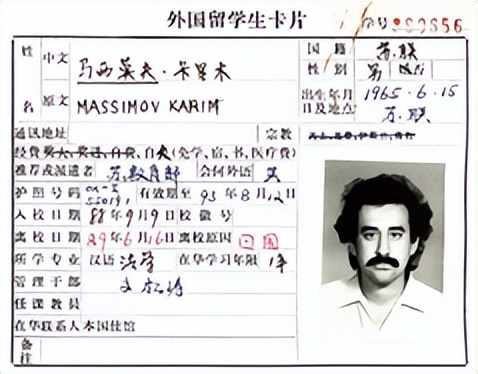 外国留学生卡片
学号
姓 中文 马西莫夫·卡里木
国籍 苏联
性别 男
名 原文 MASSIMOV KARIM
出生年月日及地点 1965.6.15
苏联
通讯地址 宗教
自费(免学、宿、书、医疗费)
推荐或派遣者 苏教育部 会何外语 英
护照号码 有效期至 93年8月12日
入校日期 88年9月9日 校徽号
离校日期 89年6月16日 离校原因 回国
所学专业 汉语 法学 在华学习年限 1年
管理干部
任课教员
在华联系人 本国使馆
备注